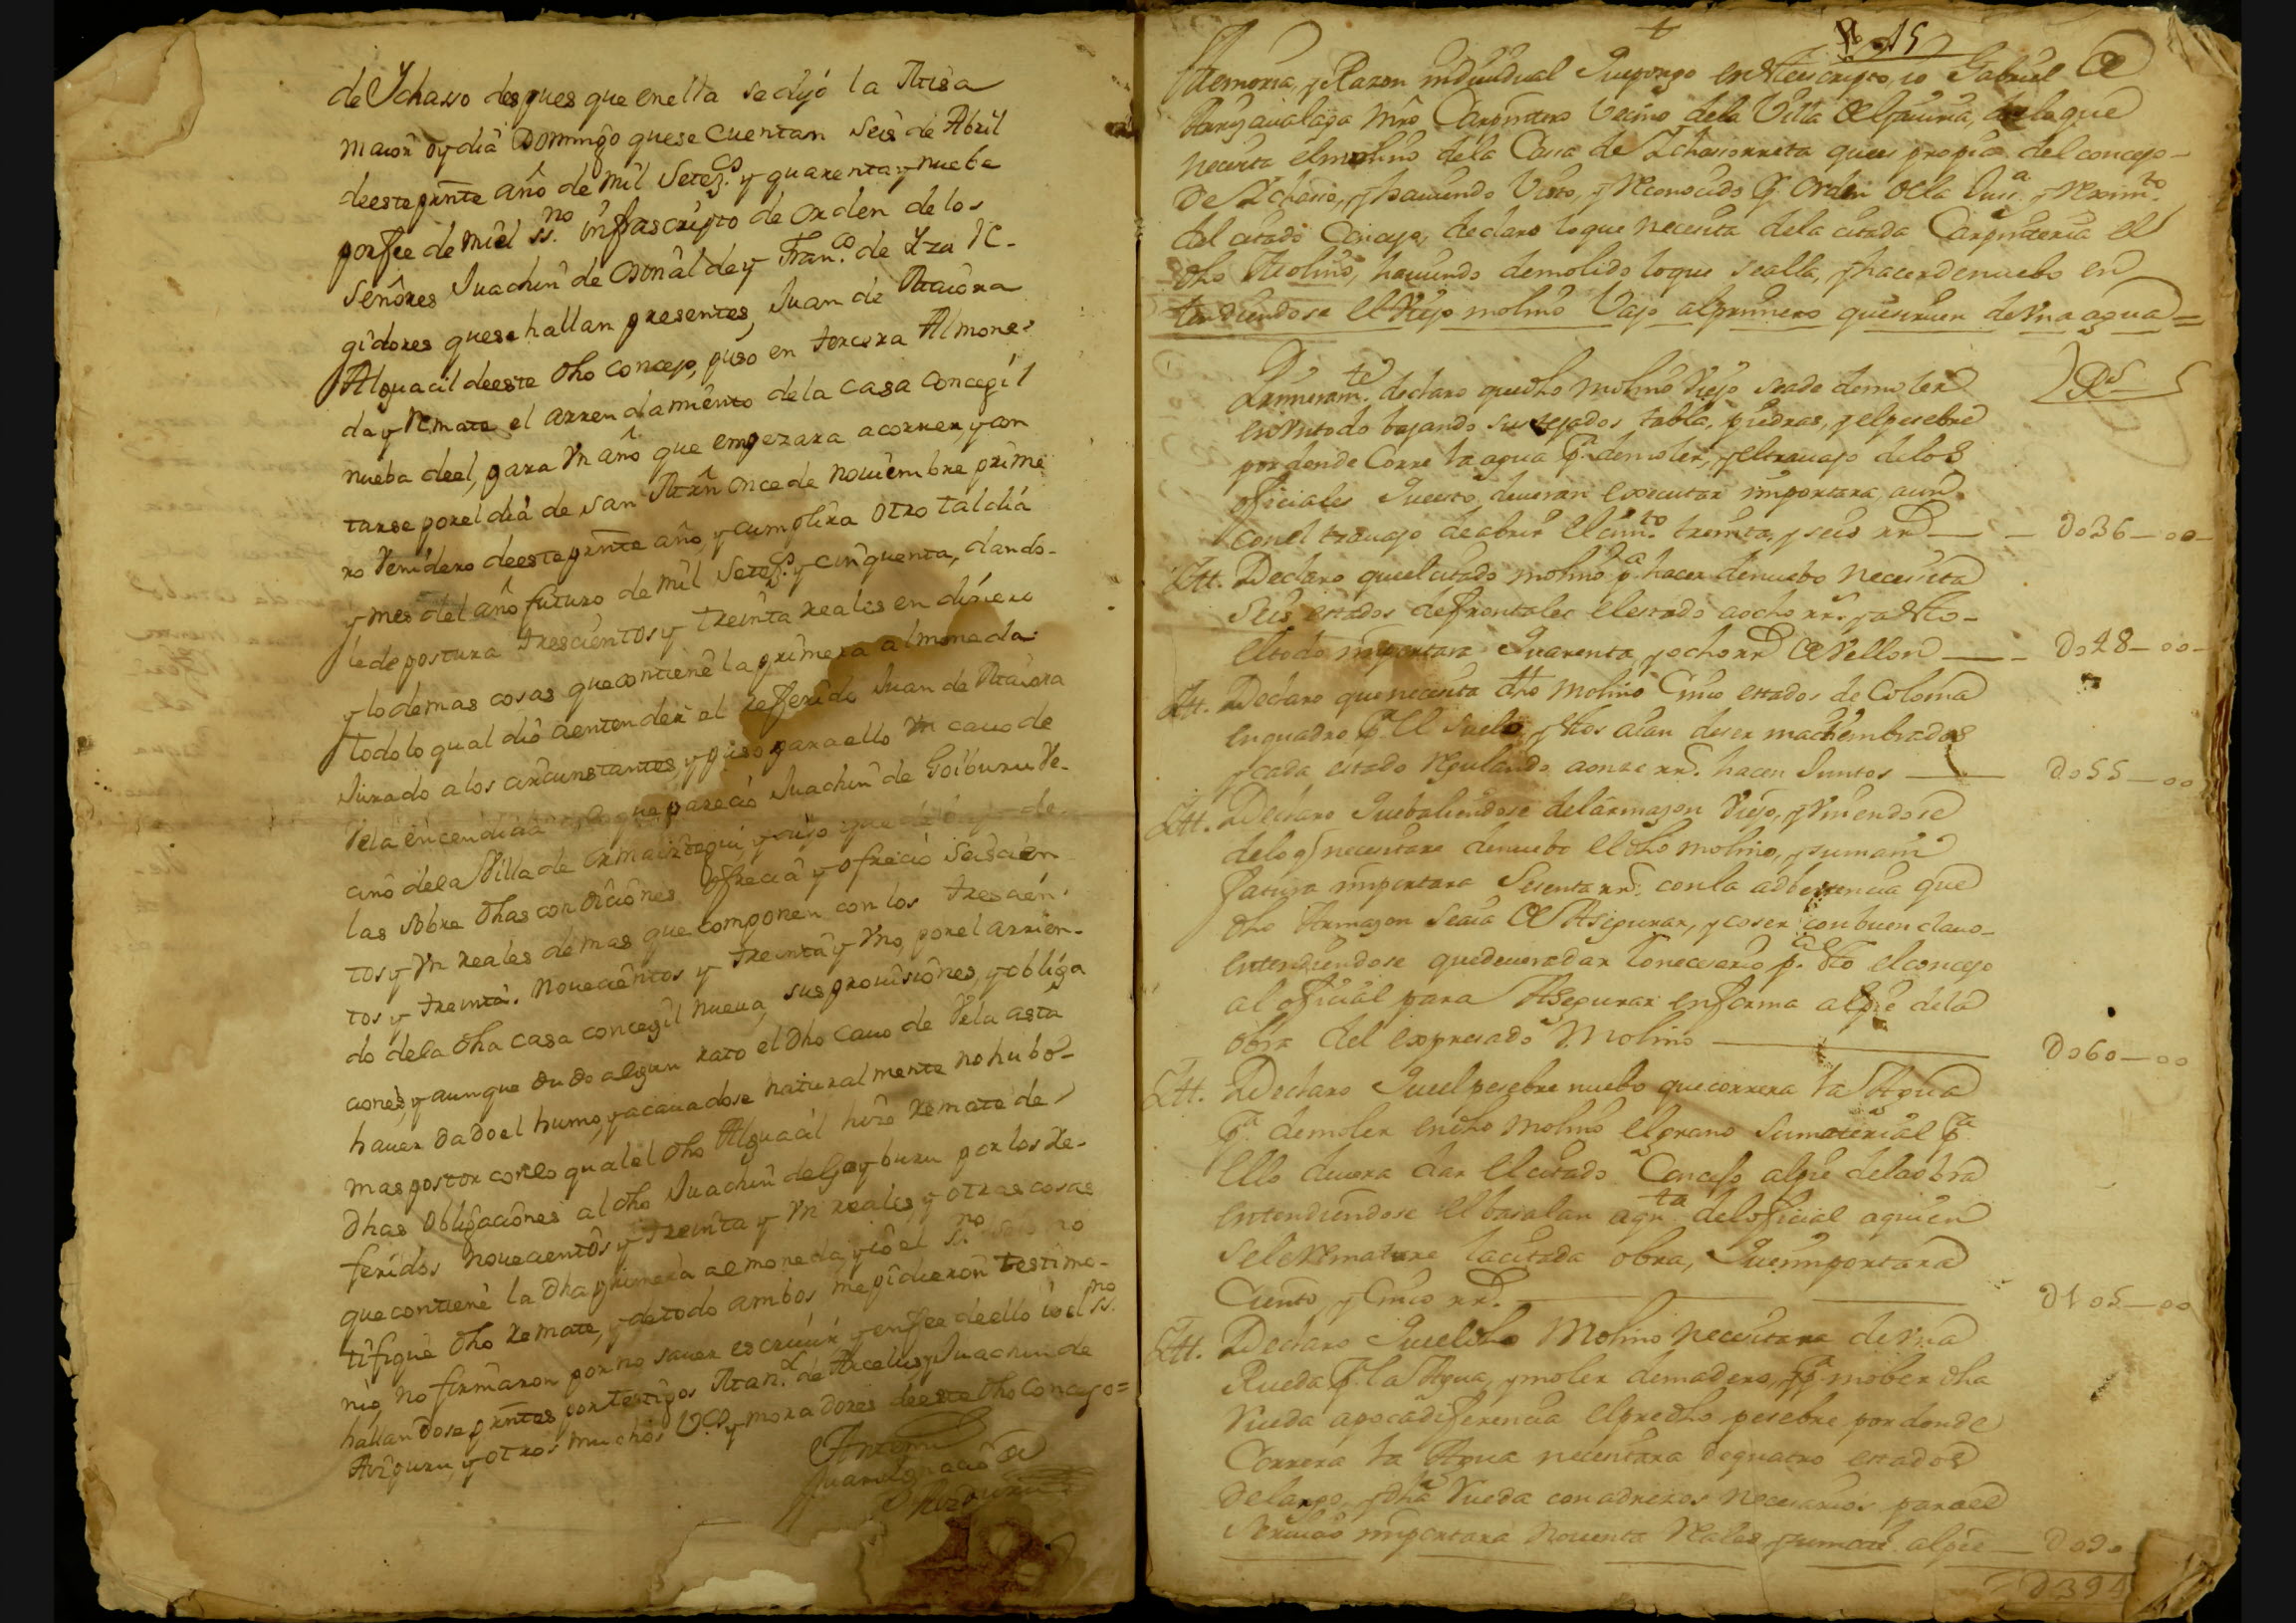 de Ychasso despues que en ella se dijó la Misa
maior oy dia Domingo que se cuentan seis de Abril
de este pnte año de mil Setez.os y quarenta y nueba
por fee de mi el ss.no infrascripto de orden de los
Señores Juachin de Osinalde y Fran.co de Yza Re-
gidores que se hallan presentes, Juan de Maiora
Alguacil de este dho Concejo, puso en tercera Almone-
da y Remate el arrendamiento de la casa Concegil
nueba de el, para Vn año que empezara a correr, y con
tarse por el dia de san Mrn once de Nouiembre prime
ro Venidero de este pnte año, y cumplira otro tal dia
y mes del año futuro de mil Setez.os y cinquenta, dando-
le de postura trescientos y treinta reales en dinero
y lo demas cosas que contiene la primera almoneda
todo lo qual dio a entender el refferido Juan de Maiora
Jurado a los circunstantes, y puso para ello Vn cauo de
Vela encendida que pareció Juachin de Goiburu Ve-
cino de la Villa de Ormaiztegui, y dijo que de
las sobre dhas condiciones ofrecia y ofreció Seiscien
tos y Vn reales demas que componen con los trescien-
tos y treinta. Novecientos y treinta y Vno, por el arrien-
do de la dha casa concegil nueua, sus prouisiones, y obliga
ciones, y aunque dudo algun rato el dho cauo de Vela asta
hauer dado el humo, y acauadose naturalmente no hubo
mas postor con lo qual el dho Alguacil hizo remate de
dhas obligaciones al dho Juachin de Goyburu por los Re-
feridos nouecientos y treinta y Vn reales, y otras cosas
que contiene la dha primera almoneda, y io el s.no
tifique dho remate, y de todo ambos me pidieron testimo-
nio, no firmaron por no sauer escriuir y en fee de ello io el ss.no
hallandose pntes por testigos Man.l de Arcelus, y Juachin de
Aviguru, y otros muchos V.os y moradores de este dho Concejo=
Ante mi
Juan Ignacio de
15
Memoria, y Razon indiuidual que pongo en este escripto, io Gabriel de
Mro Carpintero Vecino de la Villa de Gauiria, de lo que
necesita el molino de la Casa de Ychasorreta que es propia del concejo
de Ychaso, y hauiendo Visto, y Reconocido p.r orden de la Jus.a y Regim.to
del citado Concejo, declaro lo que necesita de la citada Carpinteria el
dho Molino, hauiendo demolido lo que se alla, y hacer de nuebo en
tendiendose el Viejo molino Vajo al primero que siruen de Vna agua=
R.s
Primeram.te declaro que dho molino Viejo se a de demoler
en Vn todo bajando sus tejados tabla, piedras, y el pesebre
por donde Corre la agua p.a de moler, y el trauajo de los
oficiales que esto deueran executar importara, aun
con el trauajo de abrir el cim.to treinta, y seis rr.s — D036-00-
Itt. Declaro que el citado molino p.a hacer de nuebo necesita
seis estados de frontales el estado a ocho rr.s y a esto
el todo importara quarenta, y ocho rr.s de Vellon — D048-00-
Itt. Declaro que necesita dho molino Cinco estados de Coloma
en quadro p.a el suelo, y estos aian de ser machimbrados
y cada estado Regulando a once rr.s hacen Juntos — D055-00
Itt. Declaro que baliendose del armazon Viejo, y Vniendose
de lo q necesitare de nuebo el dho molino, y su mani
fatura importara Sesenta rr.s con la adbertencia que
dho Armazon se aia de Asigurar, y coser con buen clauo
entendiendose que deuera dar lo necesario p.a esto el concejo
al oficial para Asegurar en forma al pie de la
obra del expresado Molino — D060-00
Itt. Declaro que el pesebre nuebo que correra la Agua
p.a de moler en dho molino el grano su material p.a
ello deuera dar el citado Concejo al pie de la obra
entendiendose el bacalan a qu.ta del oficial a quien
se le Rematare la citada obra, que importara
Ciento, y Cinco rr.s — D105-00
Itt. Declaro que el dho Molino necesitara de Vna
Rueda p.a la Agua, y moler de madero, y p.a mober dha
Rueda a poca diferencia el predho pesebre por donde
Correra la Agua necesitara de quatro estados
de largo, y dha Rueda con adrezos necesarios para el
Seruicio importara Nouenta Reales, y suman al pie — D090
D394